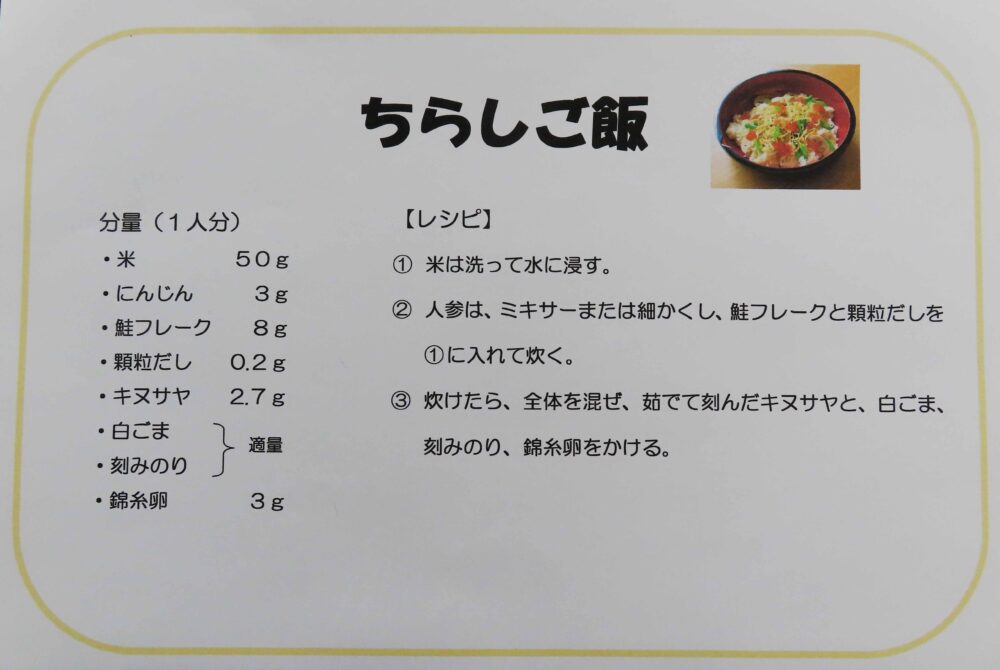 ちらしご飯
分量（１人分）
・米 ５０ｇ
・にんじん ３ｇ
・鮭フレーク ８ｇ
・顆粒だし ０.２ｇ
・キヌサヤ ２.７ｇ
・白ごま
・刻みのり
適量
・錦糸卵 ３ｇ
【レシピ】
① 米は洗って水に浸す。
② 人参は、ミキサーまたは細かくし、鮭フレークと顆粒だしを
①に入れて炊く。
③ 炊けたら、全体を混ぜ、茹でて刻んだキヌサヤと、白ごま、
刻みのり、錦糸卵をかける。